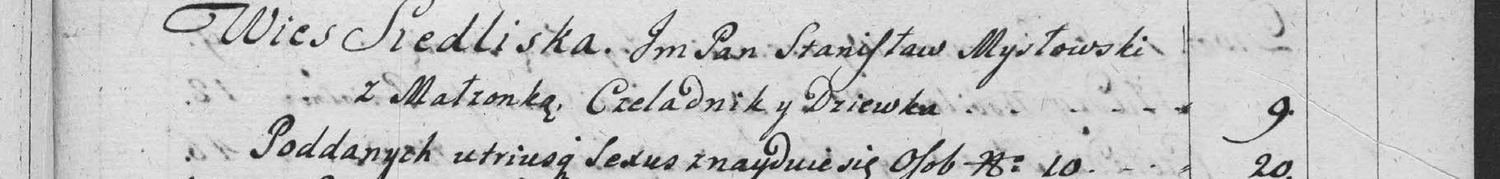 Wies Siedliska. Jm Pan Stanisław Mysłowski
z Małzonką. Czeladnik y Dziewka . . . . - - - 9.
Poddanych utriusq Sexus znayduie się Osob No 10. - - - 20.